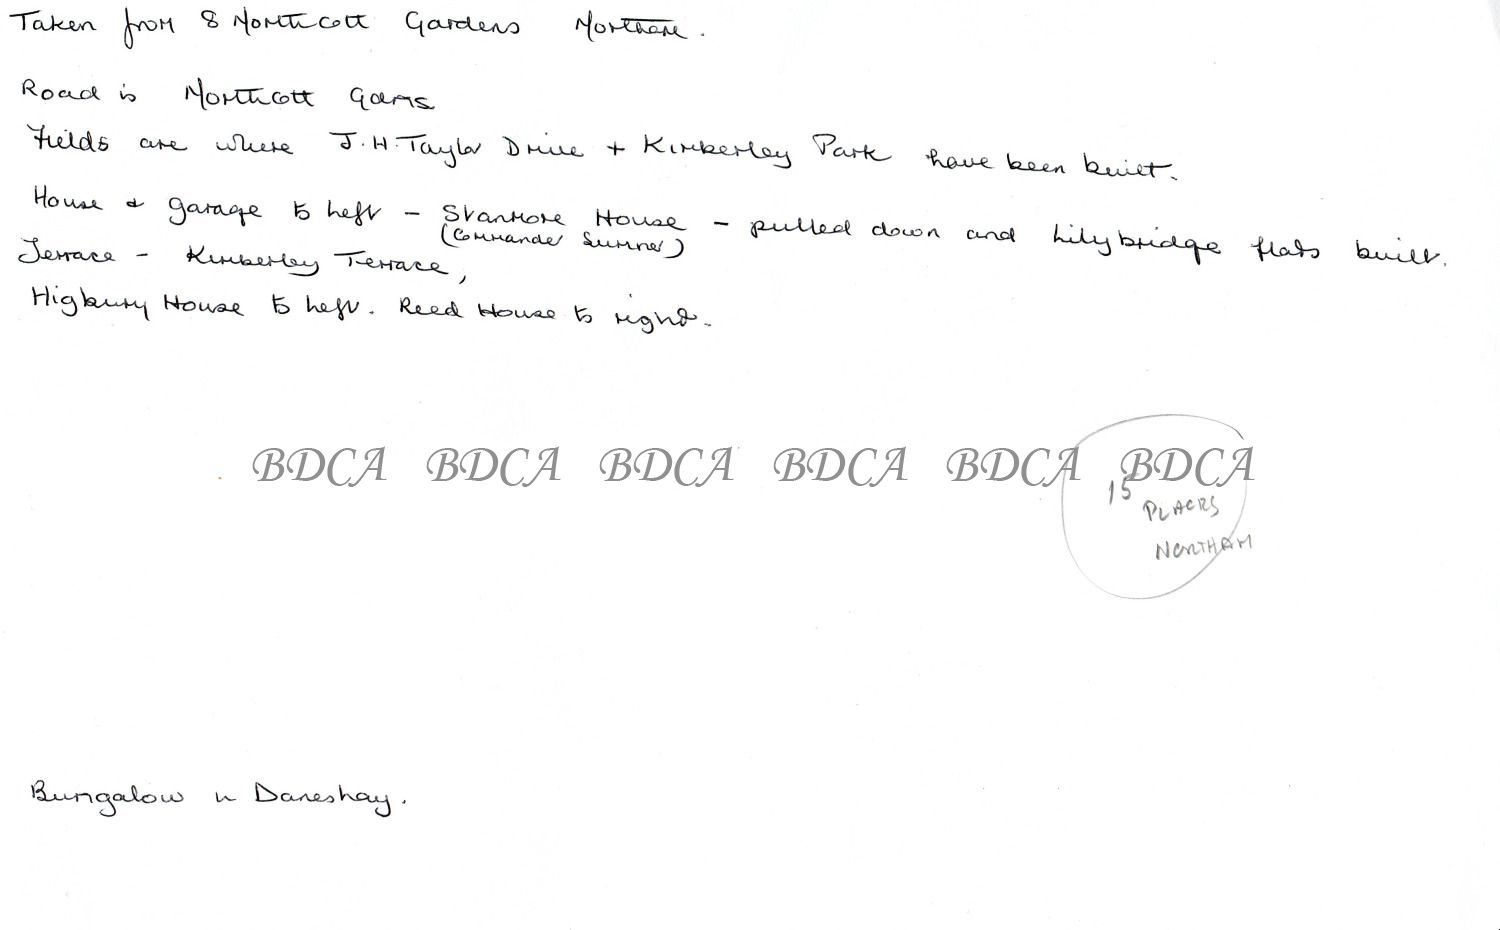 Taken from 8 Northcott Gardens Northam.
Road is Northcott Gdns
Fields are where J.H. Taylor Drive + Kimberley Park have been built.
House & garage to left - Stanmore House - pulled down and Lilybridge flats built.
(Commander Sumner)
Terrace - Kimberley Terrace,
Higbury House to left. Reed House to right.
BDCA BDCA BDCA BDCA BDCA BDCA
15
PLACES
NORTHAM
Bungalow in Daneshay.